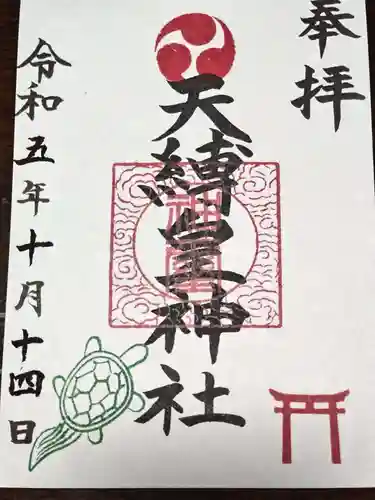 奉拝
天縛皇神社
令和五年十月十四日